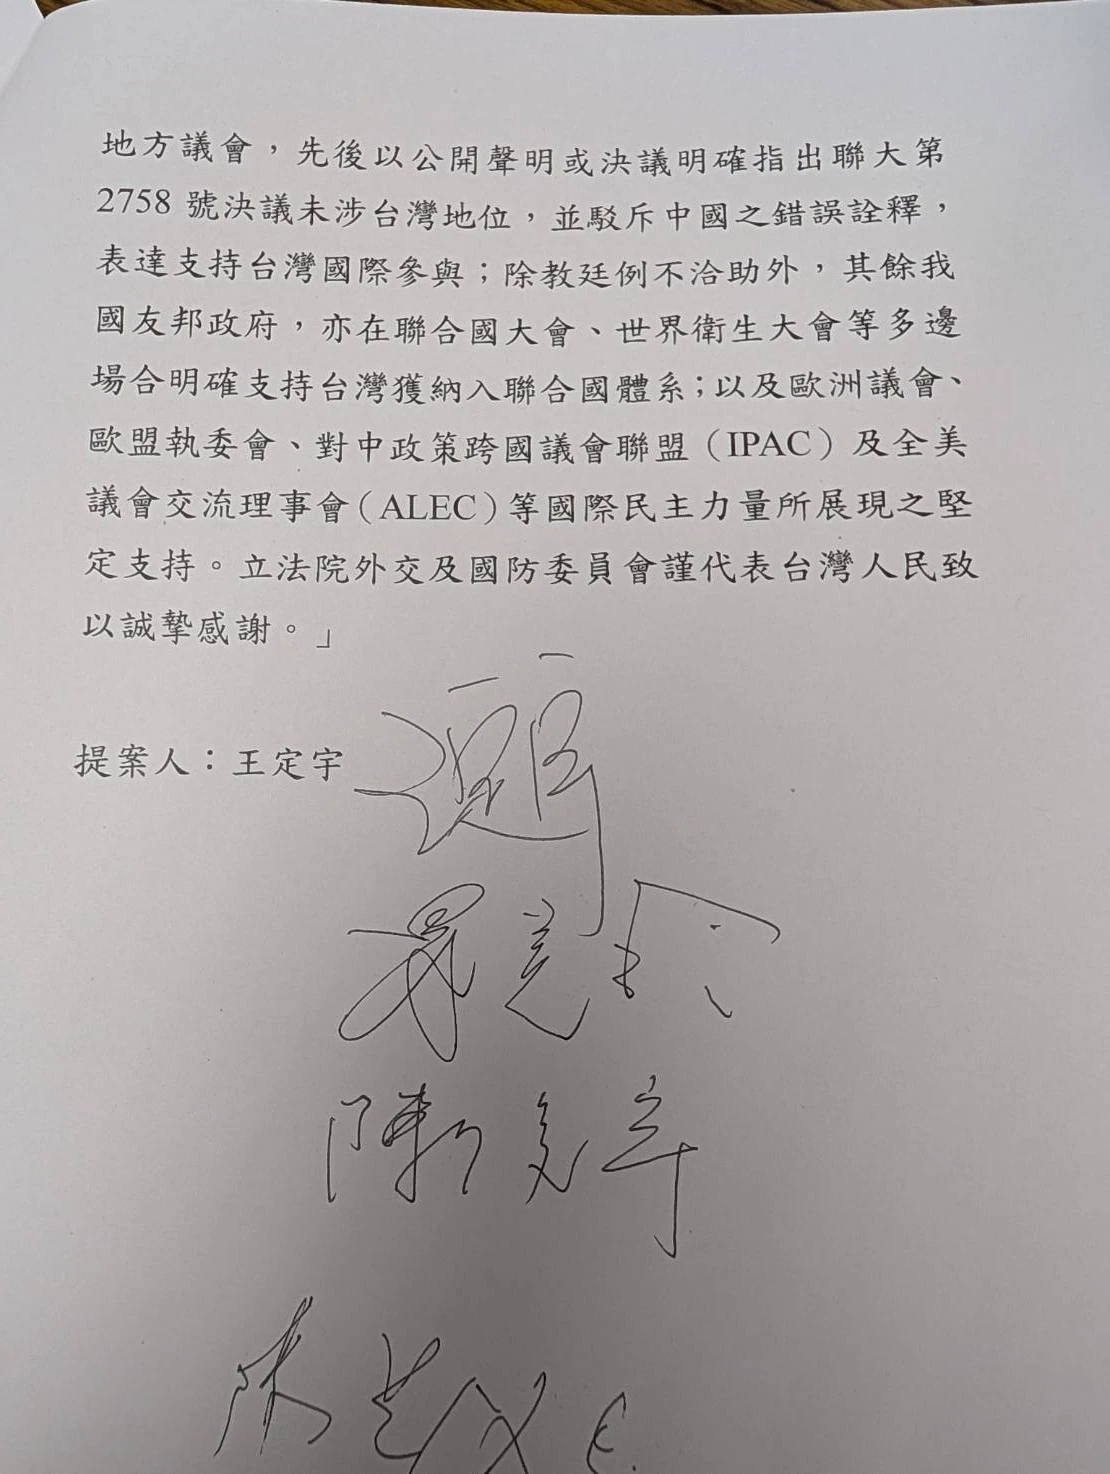 地方議會，先後以公開聲明或決議明確指出聯大第
2758 號決議未涉台灣地位，並駁斥中國之錯誤詮釋，
表達支持台灣國際參與；除教廷例不洽助外，其餘我
國友邦政府，亦在聯合國大會、世界衛生大會等多邊
場合明確支持台灣獲納入聯合國體系；以及歐洲議會、
歐盟執委會、對中政策跨國議會聯盟（IPAC）及全美
議會交流理事會（ALEC）等國際民主力量所展現之堅
定支持。立法院外交及國防委員會謹代表台灣人民致
以誠摯感謝。」
提案人：王定宇
陳
陳